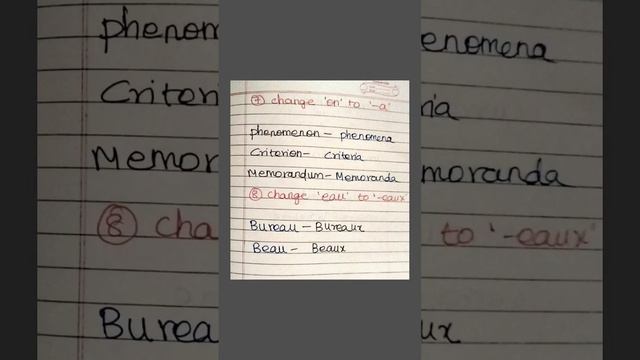 ⑦ change 'on' to '-a'
phenomenon – phenomena
Criterion – Criteria
Memorandum – Memoranda
⑧ change 'eau' to '-eaux'
Bureau – Bureaux
Beau – Beaux